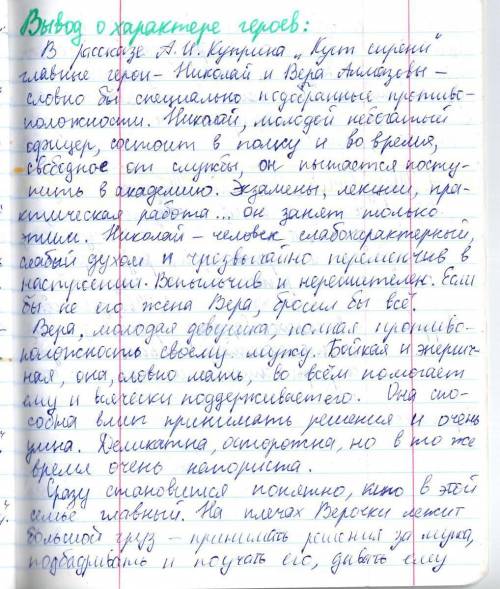 Вывод о характере героев:
В рассказе А. И. Куприна "Куст сирени"
главные герои - Николай и Вера Алмазовы -
словно бы специально подобранные противо-
положности. Николай, молодой небогатый
офицер, состоит в полку и во время,
свободное от службы, он пытается посту-
пить в академию. Экзамены, лекции, пра-
ктическая работа... он занят только
этим. Николай - человек слабохарактерный,
слабый духом и чрезвычайно переменчив в
настроении. Вспыльчив и нерешителен. Если
бы не его жена Вера, бросил бы всё.
Вера, молодая девушка, полная противо-
положность своему мужу. Бойкая и энергич-
ная, она, словно мать, во всём помогает
ему и всячески поддерживает его. Она спо-
собна вмиг принимать решения и очень
умна. Деликатна, осторожна, но в то же
время очень напориста.
Сразу становится понятно, кто в этой
семье главный. На плечах Верочки лежит
большой груз - принимать решения за мужа,
подбадривать и поучать его, давать ему